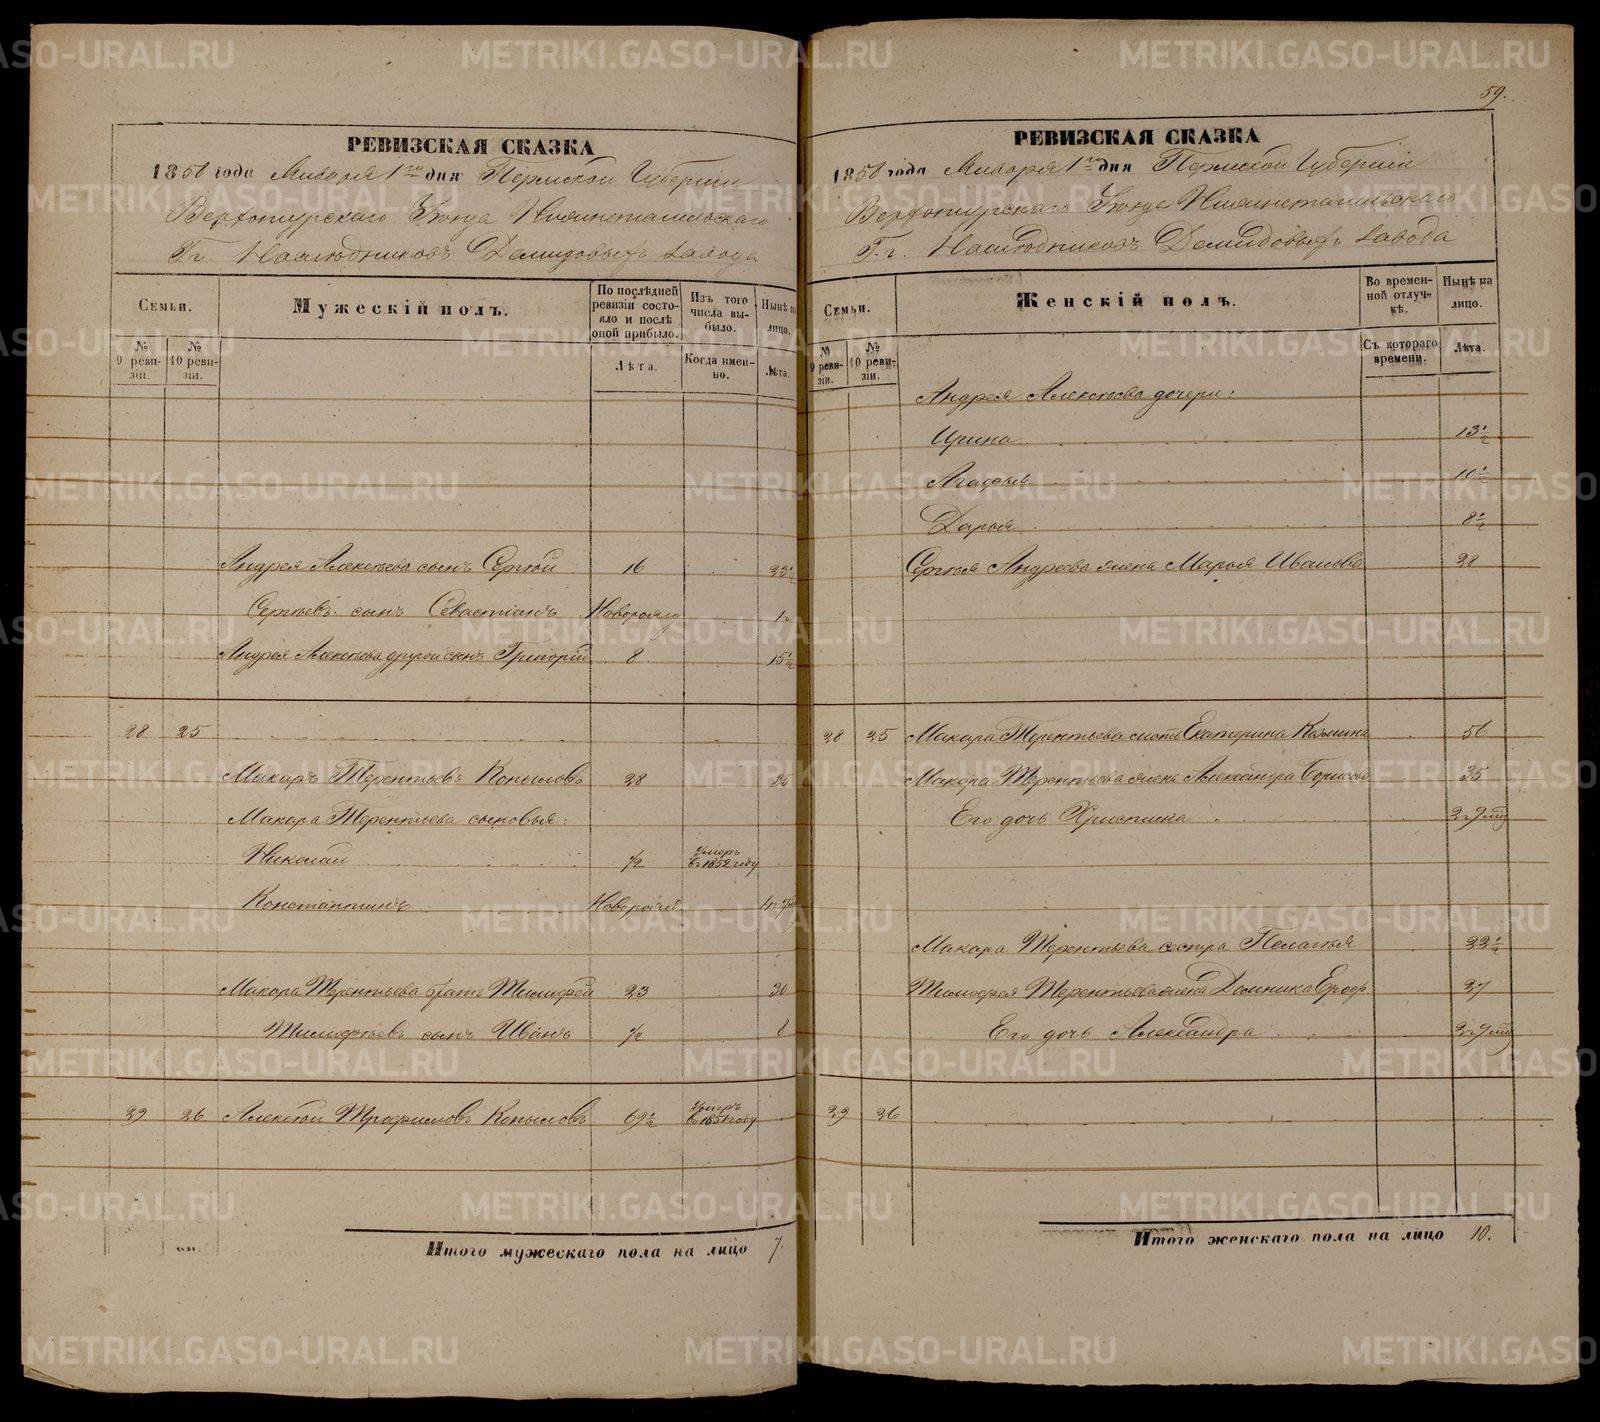 РЕВИЗСКАЯ СКАЗКА
1858 года Января 1го дня Пермской Губернии
Верхотурскаго Уезда Нижнетагильскаго
Г.г. Наследниковъ Демидовыхъ завода
Семьи.
Мужескій полъ.
По послѣдней ревизіи состояло и послѣ оной прибыло.
Изъ того числа выбыло.
Нынѣ на лицо.
№ 9 ревизіи.
№ 10 ревизіи.
Лѣта.
Когда именно.
Лѣта.
Андрея Алексѣева сынъ Сергѣй 16
Сергѣевъ сынъ Севастіанъ Новорожд
Андрея Алексѣева другой сынъ Григорій 8 15½
28 25
Макаръ Терентьевъ Копыловъ 28
Макара Терентьева сыновья:
Николай ½ Умеръ въ 1852 году
Константинъ Новорожд
Макара Терентьева братъ Тимофей 23 30
Тимофѣевъ сынъ Иванъ ½ 8
29 26 Алексѣй Трофимовъ Копыловъ 69½ Умеръ въ 1851 году
Итого мужескаго пола на лицо 7.
59.
РЕВИЗСКАЯ СКАЗКА
1858 года Января 1го дня Пермской Губерніи
Верхотурскаго Уезда Нижнетагильскаго
Г.г. Наследниковъ Демидовыхъ завода
Семьи.
Женскій полъ.
Во временной отлучкѣ.
Нынѣ на лицо.
№ 9 ревизіи.
№ 10 ревизіи.
Съ котораго времени.
Лѣта.
Андрея Алексѣева дочери:
Ирина 13½
Агафья 10½
Дарья 8½
Сергѣя Андреева жена Марья Иванова 28
28 25 Макара Терентьева Екатерина Козмина 56
Макара Терентьева жена Александра Борисова 35
Его дочь Христина
Макара Терентьева сестра Пелагѣя 22½
Тимофея Терентьева жена Домника Ероф 27
Его дочь Александра
29 26
Итого женскаго пола на лицо 10.
METRIKI.GASO-URAL.RU